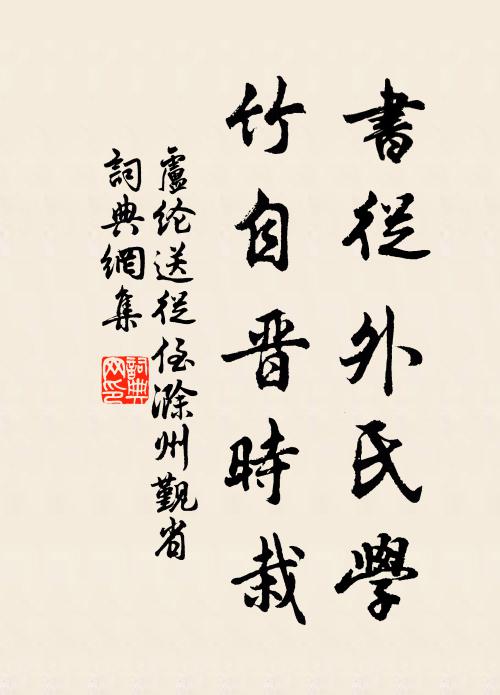 書從外氏學
竹自晋時栽
盧纶送從侄滁州覲省
詞典網集
詞典網印